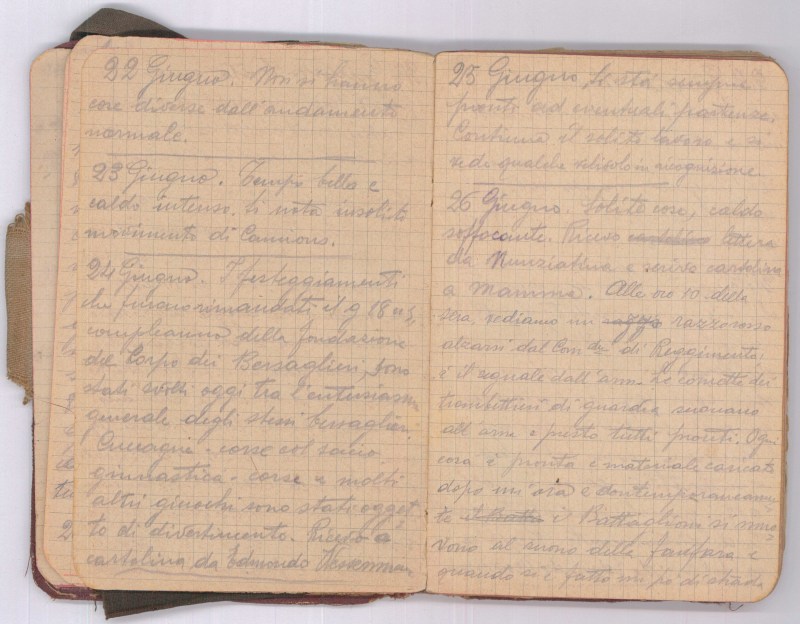 22 Giugno. Non si hanno
cose diverse dall'andamento
normale.
23 Giugno. Tempo bello e
caldo intenso. Si nota insolito
movimento di Camions.
24 Giugno. I festeggiamenti
che furono rimandati il g 18 u.s.
compleanno della fondazione
del Corpo dei Bersaglieri, sono
stati svolti oggi tra l'entusiasmo
generale degli stessi bersaglieri.
Cuccagne - corse col sacco
ginnastica - corse e molti
altri giuochi sono stati ogget
to di divertimento. Ricevo
cartolina da Edmondo
25 Giugno Si sta sempre
pronti ad eventuali partenze.
Continua il solito lavoro e si
vede qualche velivolo in ricognizione.
26 Giugno. Solite cose, caldo
soffocante. Ricevo cartolina lettera
da Nunziatina e scrivo cartolina
a Mamma. Alle ore 10 della
sera, vediamo un razzo rosso
alzarsi dal Com.do di Reggimento:
è il segnale dall'armi. Le cornette dei
trombettieri di guardia suonano
all'armi e presto tutti pronti. Ogni
cosa è pronta e materiale caricato
dopo un'ora e contemporaneamen
te il Battaglione si muo
vono al suono della fanfara e
quando si è fatto un pò di strada